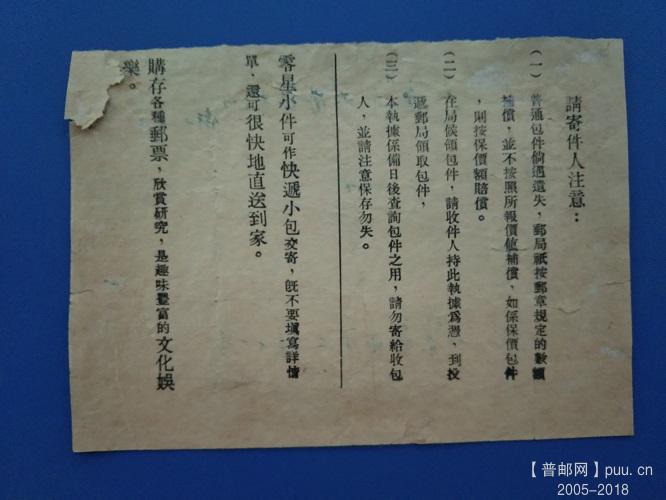 請寄件人注意：
（一）普通包件倘遇遺失，郵局祇按郵章規定的數額
補償，並不按照所報價値補償，如係保價包件
，則按保價額賠償。
（二）在局候領包件，請收件人持此執據爲憑，到投
遞郵局領取包件，
（三）本執據係備日後查詢包件之用，請勿寄給收包
人，並請注意保存勿失。
零星小件可作快遞小包交寄，旣不要塡寫詳情
單，還可很快地直送到家。
購存各種郵票，欣賞硏究，是趣味豐富的文化娛
樂。
【普邮网】puu.cn
2005-2018